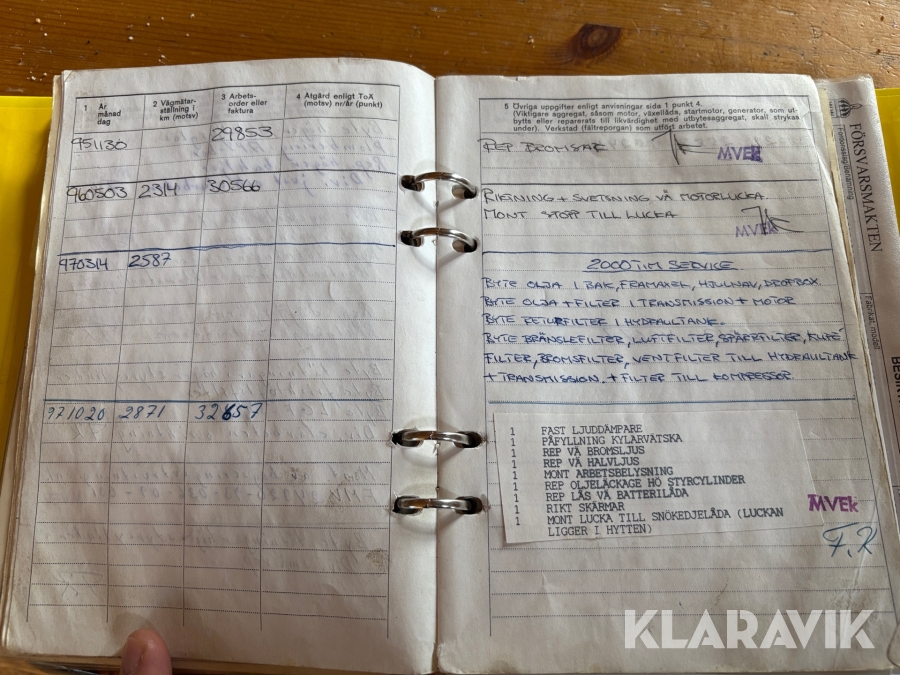 1 År månad dag
2 Vägmätarställning i km (motsv)
3 Arbetsorder eller faktura
4 Åtgärd enligt ToX (motsv) nr/år (punkt)
951130 29853
960503 2314 30566
970314 2587
971020 2871 32657
5 Övriga uppgifter enligt anvisningar sida 1 punkt 4.
(Viktigare aggregat, såsom motor, växellåda, startmotor, generator, som ut-
bytts eller reparerats till likvärdighet med utbytesaggregat, skall strykas
under). Verkstad (fältrepargan) som utfört arbetet.
REP BROMSAR
MVEK
RIKTNING + SVETSNING VÄ MOTORLUCKA.
MONT STOPP TILL LUCKA
MVEK
2000TIM SERVICE
BYTE OLJA I BAK, FRAMAXEL, HJULNAV, DROPBOX.
BYTE OLJA + FILTER I TRANSMISSION + MOTOR
BYTE RETURFILTER I HYDRAULTANK.
BYTE BRÄNSLEFILTER, LUFTFILTER, SPÄRRFILTER, KUPÉ
FILTER, BROMSFILTER, VENTFILTER TILL HYDRAULTANK
+ TRANSMISSION. + FILTER TILL KOMPRESSOR.
1 FAST LJUDDÄMPARE
1 PÅFYLLNING KYLARVÄTSKA
1 REP VÄ BROMSLJUS
1 REP VÄ HALVLJUS
1 MONT ARBETSBELYSNING
1 REP OLJELÄCKAGE HÖ STYRCYLINDER
1 REP LÅS VÄ BATTERILÅDA
1 RIKT SKÄRMAR
1 MONT LUCKA TILL SNÖKEDJELÅDA (LUCKAN
LIGGER I HYTTEN)
MVEK
F.K
FÖRSVARSMAKTEN
Fabrikat, modell
KLARAVIK